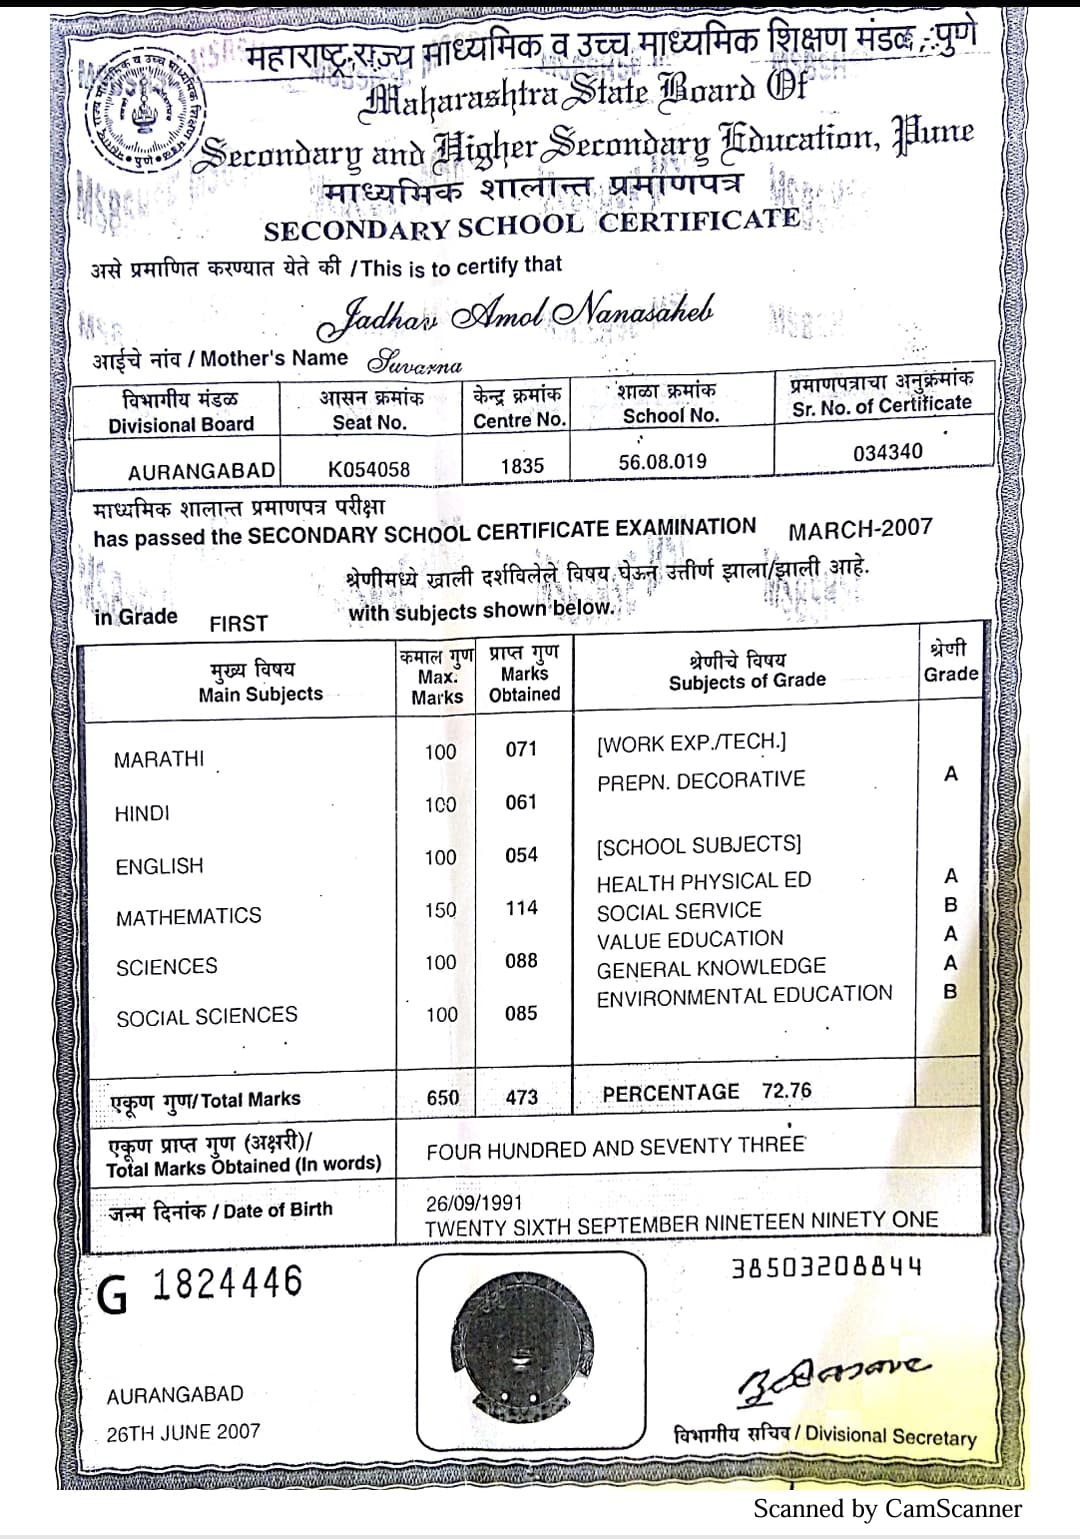 महाराष्ट्र राज्य माध्यमिक व उच्च माध्यमिक शिक्षण मंडळ, पुणे
Maharashtra State Board Of
Secondary and Higher Secondary Education, Pune
माध्यमिक शालान्त प्रमाणपत्र
SECONDARY SCHOOL CERTIFICATE
असे प्रमाणित करण्यात येते की / This is to certify that
Jadhav Amol Nanasaheb
आईचे नांव / Mother's Name Suvarna
विभागीय मंडळ आसन क्रमांक केन्द्र क्रमांक शाळा क्रमांक प्रमाणपत्राचा अनुक्रमांक
Divisional Board Seat No. Centre No. School No. Sr. No. of Certificate
AURANGABAD K054058 1835 56.08.019 034340
माध्यमिक शालान्त प्रमाणपत्र परीक्षा
has passed the SECONDARY SCHOOL CERTIFICATE EXAMINATION MARCH-2007
श्रेणीमध्ये खाली दर्शविलेले विषय घेऊन उत्तीर्ण झाला/झाली आहे.
in Grade FIRST with subjects shown below.
मुख्य विषय कमाल गुण प्राप्त गुण श्रेणीचे विषय श्रेणी
Main Subjects Max. Marks Marks Obtained Subjects of Grade Grade
MARATHI 100 071 [WORK EXP./TECH.]
PREPN. DECORATIVE A
HINDI 100 061
ENGLISH 100 054 [SCHOOL SUBJECTS]
HEALTH PHYSICAL ED A
MATHEMATICS 150 114 SOCIAL SERVICE B
VALUE EDUCATION A
SCIENCES 100 088 GENERAL KNOWLEDGE A
ENVIRONMENTAL EDUCATION B
SOCIAL SCIENCES 100 085
एकूण गुण/ Total Marks 650 473 PERCENTAGE 72.76
एकूण प्राप्त गुण (अक्षरी)/
Total Marks Obtained (In words) FOUR HUNDRED AND SEVENTY THREE
जन्म दिनांक / Date of Birth 26/09/1991
TWENTY SIXTH SEPTEMBER NINETEEN NINETY ONE
G 1824446 38503208844
AURANGABAD
26TH JUNE 2007
विभागीय सचिव / Divisional Secretary
Scanned by CamScanner